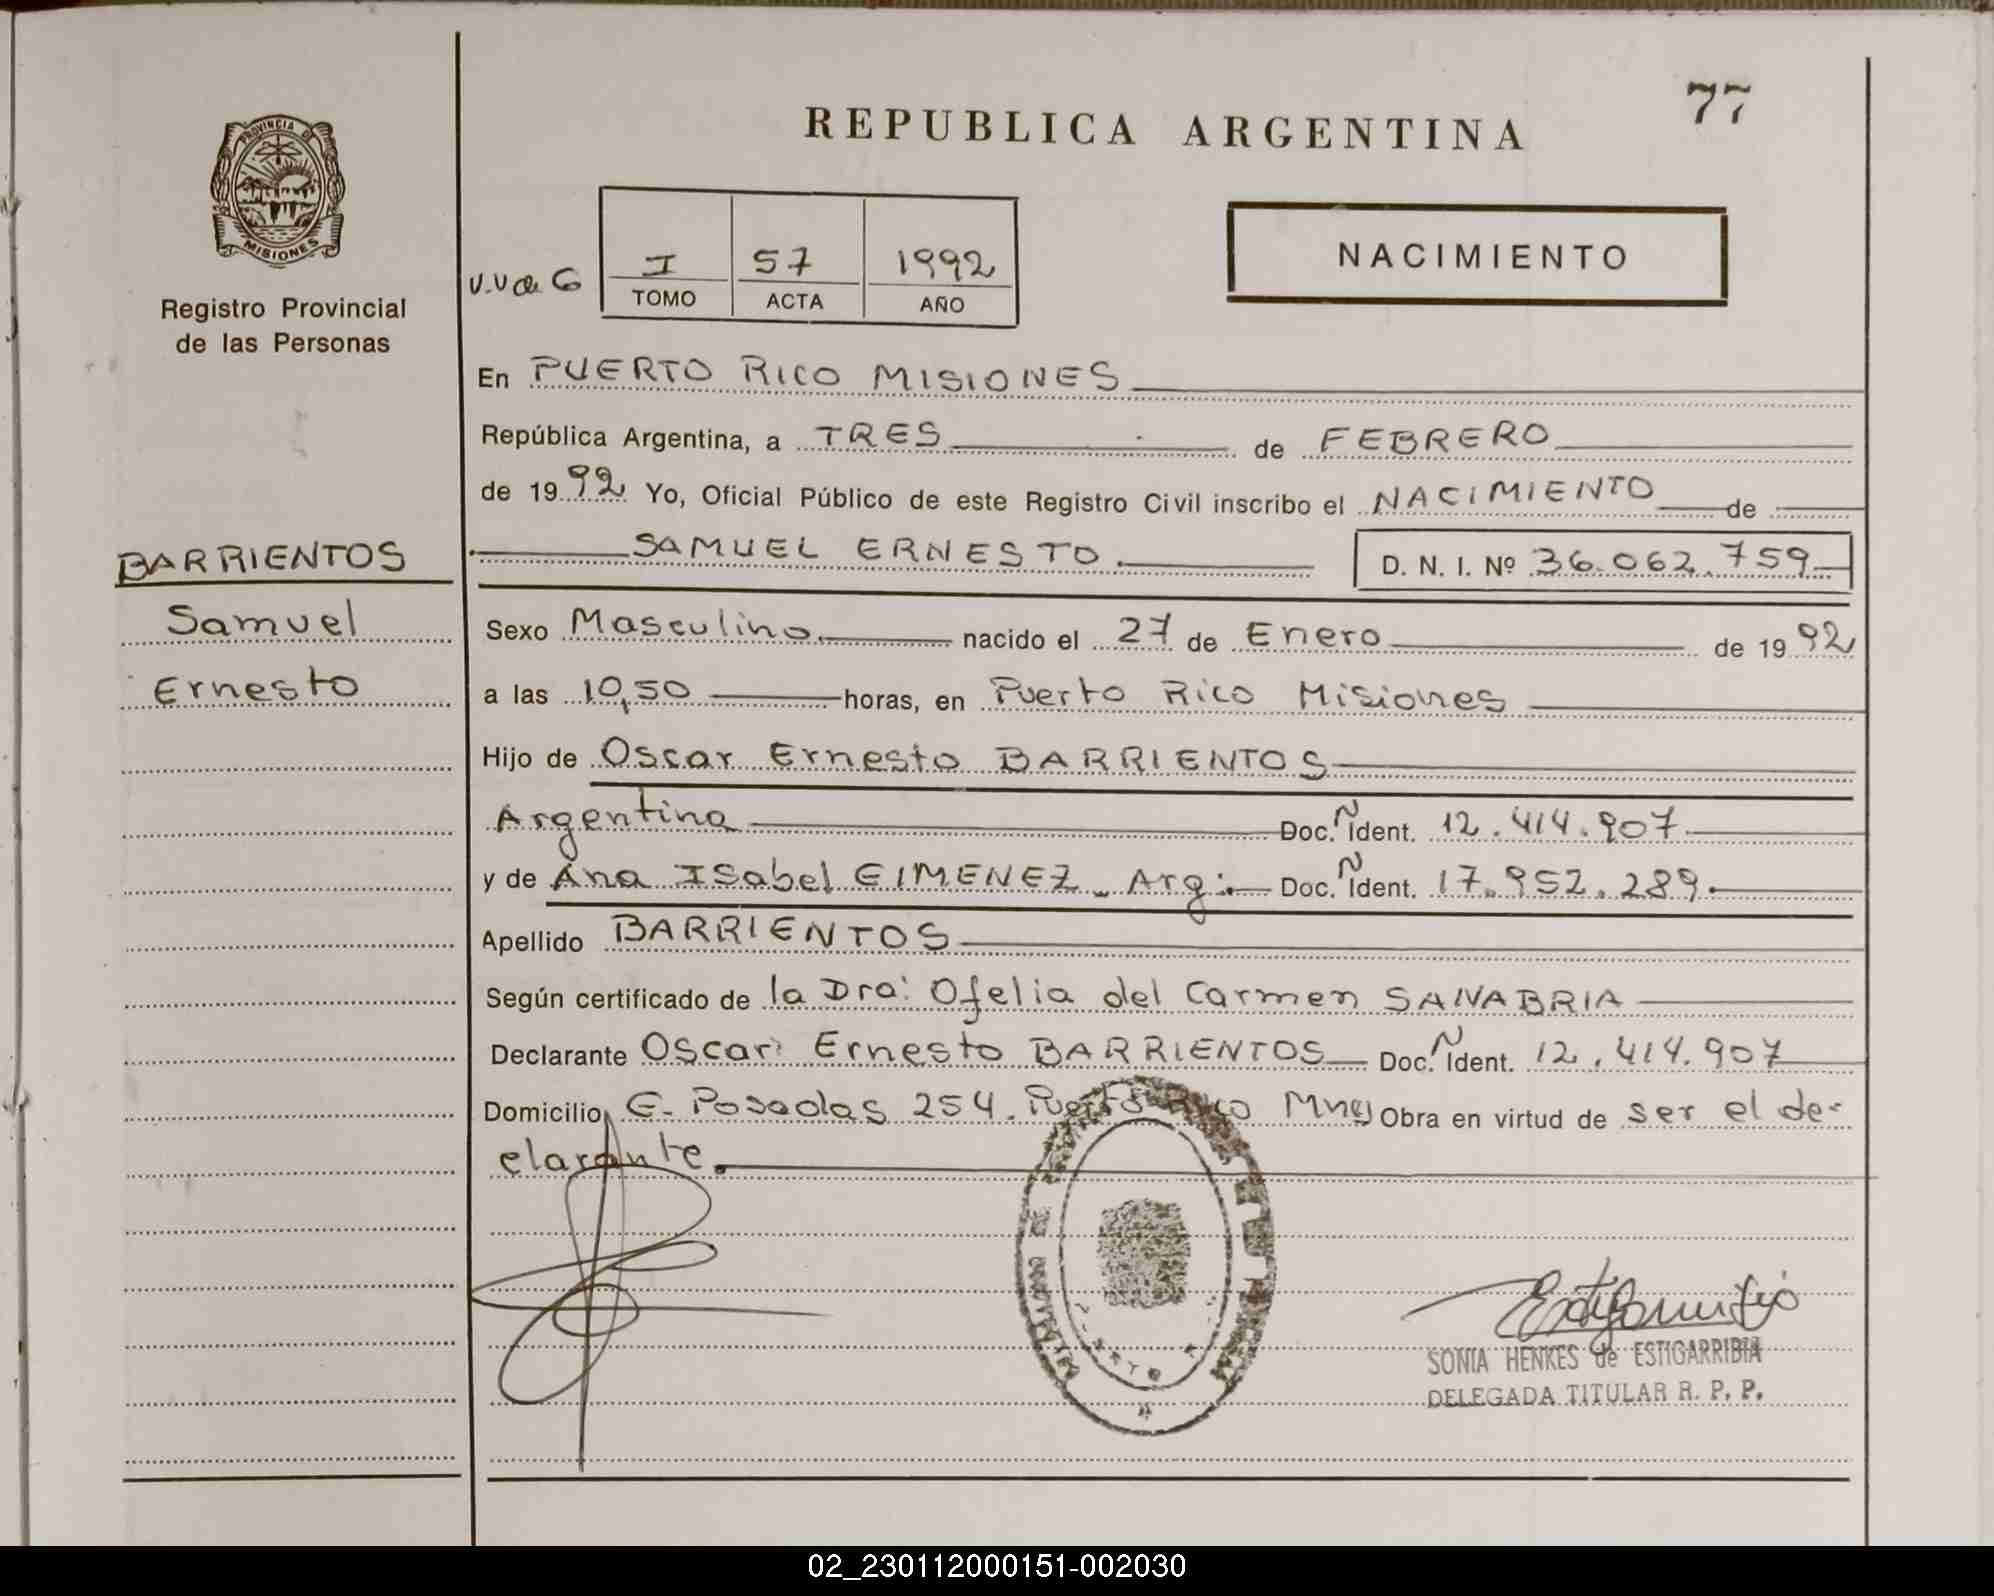 77
REPUBLICA ARGENTINA
PROVINCIA DE
MISIONES
Registro Provincial
de las Personas
I 57 1992
TOMO ACTA AÑO
NACIMIENTO
En PUERTO RICO MISIONES
República Argentina, a TRES de FEBRERO
de 1992 Yo, Oficial Público de este Registro Civil inscribo el NACIMIENTO de
SAMUEL ERNESTO. D. N. I. Nº 36.062.759
BARRIENTOS
Samuel
Ernesto
Sexo Masculino. nacido el 27 de Enero de 1992
a las 10,50 horas, en Puerto Rico Misiones
Hijo de Oscar Ernesto BARRIENTOS
Argentina Doc. Ñ Ident. 12.414.907
y de Ana Isabel GIMENEZ - Arg:. Doc. Ñ Ident. 17.952.289.
Apellido BARRIENTOS
Según certificado de la Dra: Ofelia del Carmen SANABRIA
Declarante Oscar Ernesto BARRIENTOS Doc. Ñ Ident. 12.414.907
Domicilio G. Posadas 254. Puerto Rico Mnes Obra en virtud de ser el de-
clarante.
SONIA HENKES de ESTIGARRIBIA
DELEGADA TITULAR R. P. P.
02_230112000151-002030